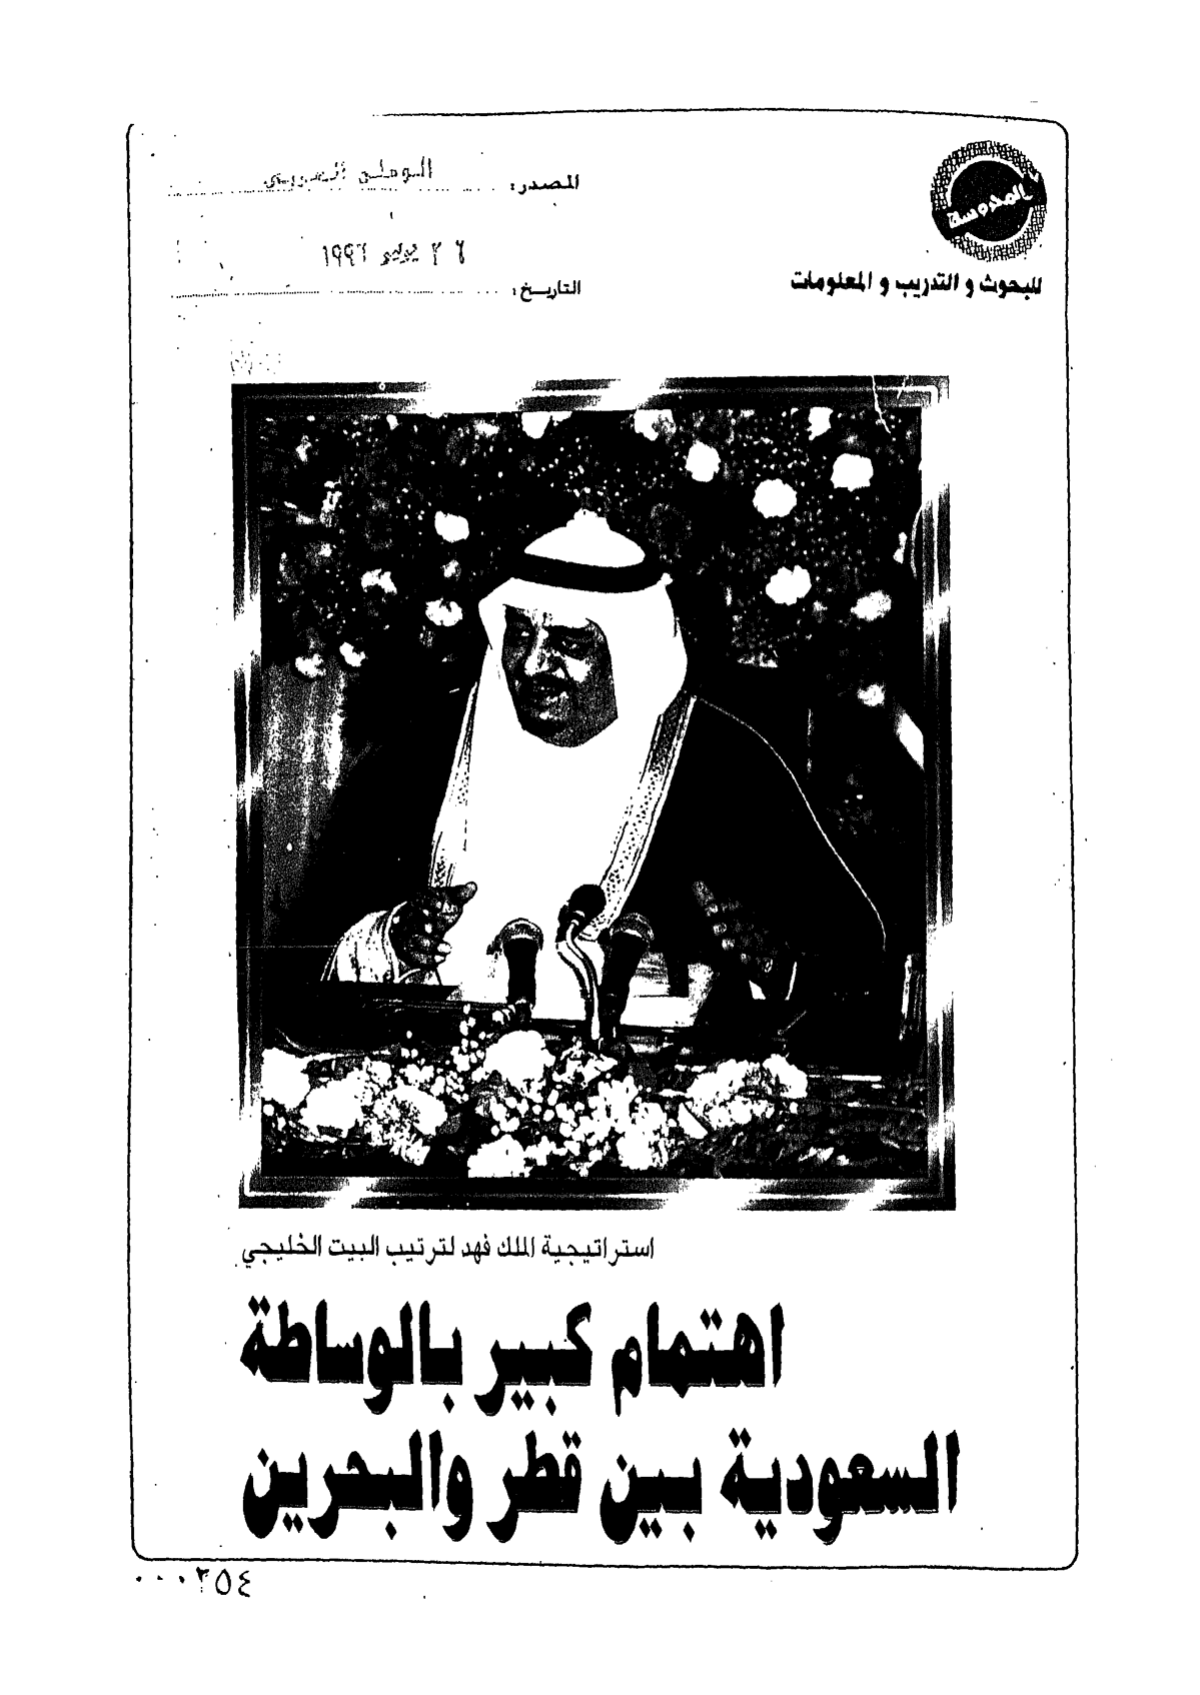 المدوسة
للبحوث و التدريب و المعلومات
المصدر: الوطن العربي
التاريخ: ٢٦ يوليو ١٩٩٦
استراتيجية الملك فهد لترتيب البيت الخليجي
اهتمام كبير بالوساطة
السعودية بين قطر والبحرين
٠٠٠٢٥٤